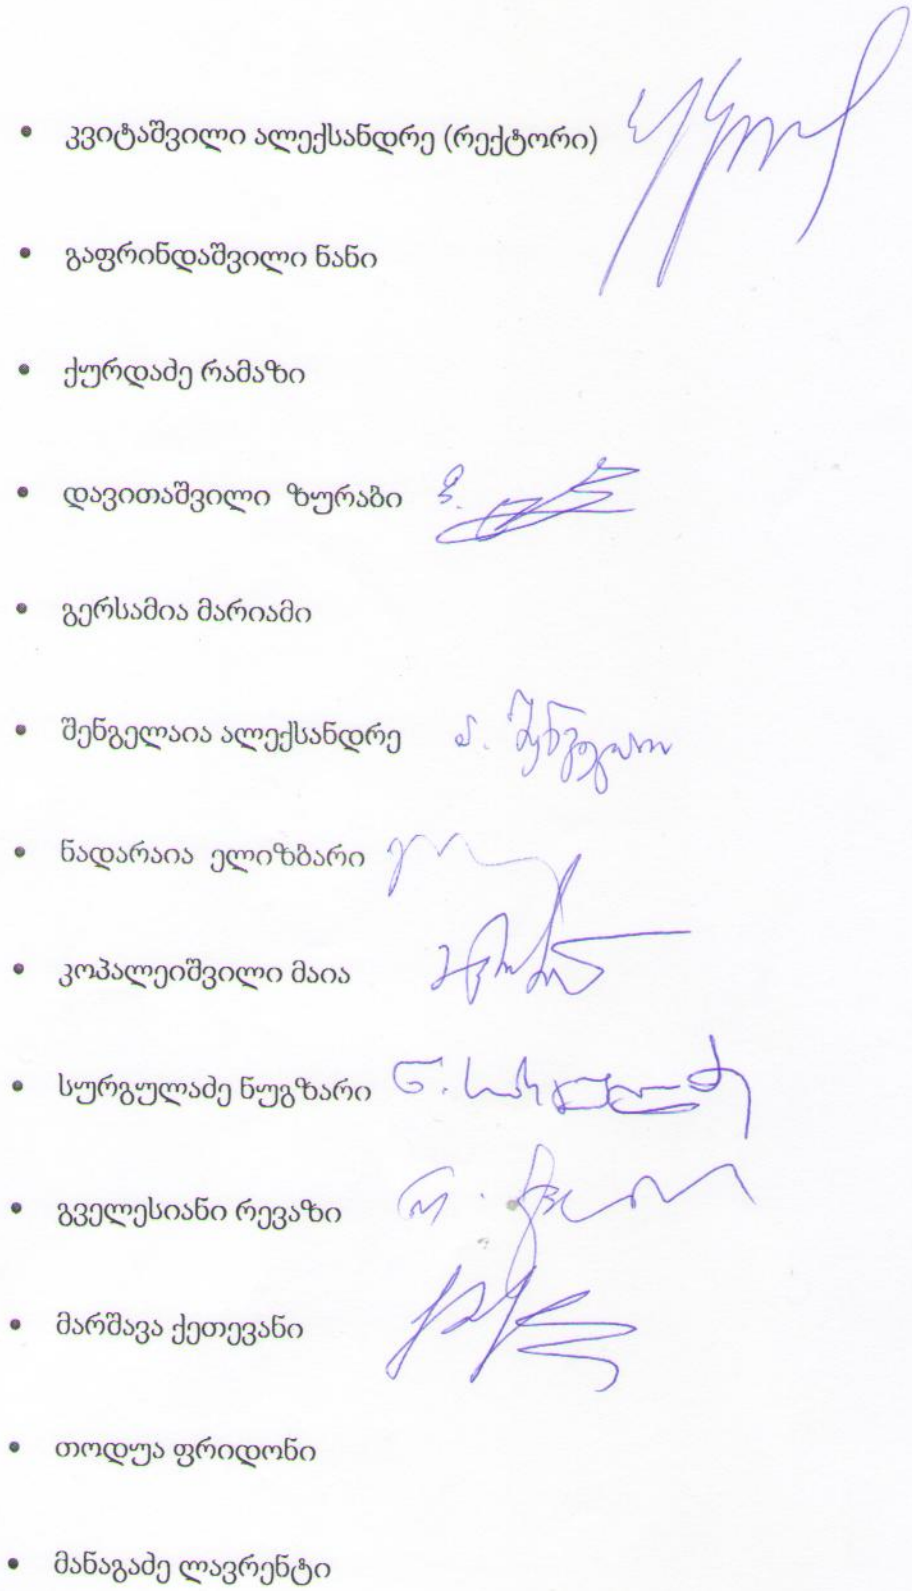 • კვიტაშვილი ალექსანდრე (რექტორი)
• გაფრინდაშვილი ნანი
• ქურდაძე რამაზი
• დავითაშვილი ზურაბი
• გერსამია მარიამი
• შენგელაია ალექსანდრე
• ნადარაია ელიზბარი
• კოპალეიშვილი მაია
• სურგულაძე ნუგზარი
• გველესიანი რევაზი
• მარშავა ქეთევანი
• თოდუა ფრიდონი
• მანაგაძე ლავრენტი